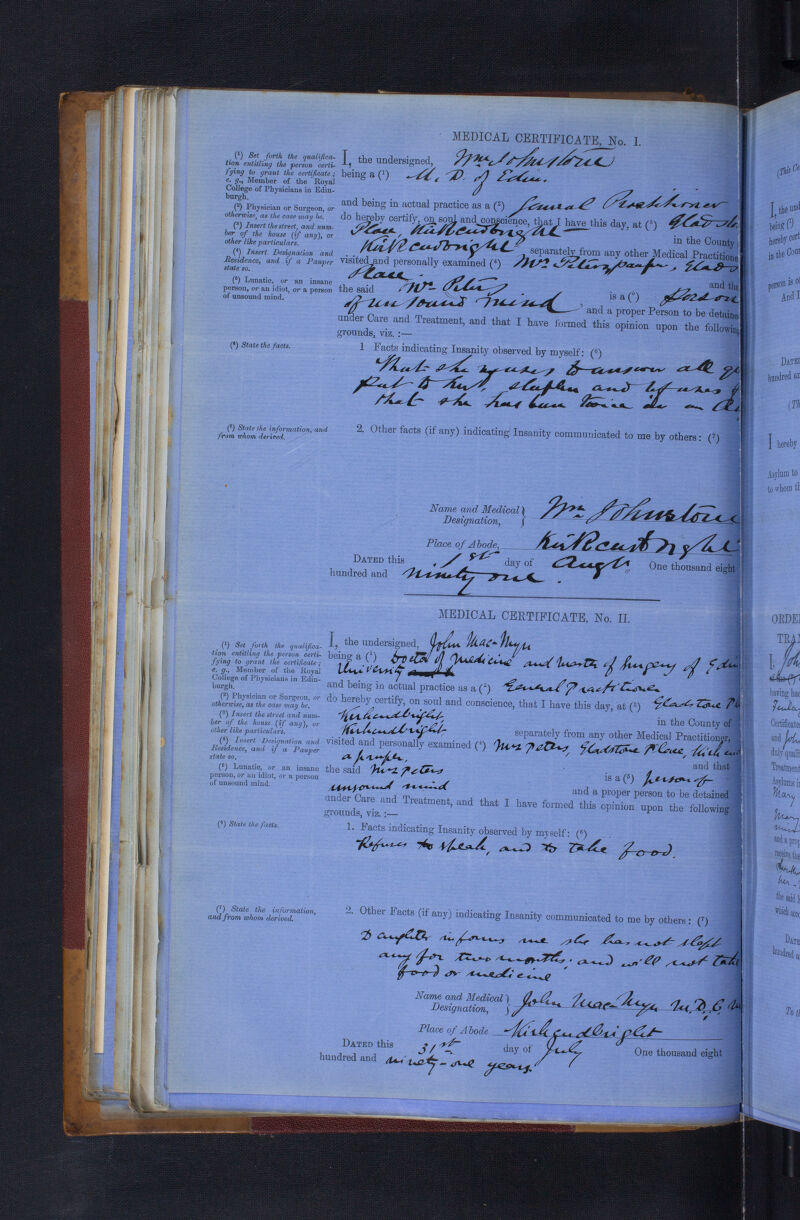 MEDICAL CERTIFICATE, No. I.
(1) Set forth the qualifica-
tion entitling the person certi-
fying to grant the certificate;
e. g., Member of the Royal
College of Physicians in Edin-
burgh.
(2) Physician or Surgeon, or
otherwise, as the case may be.
(3) Insert the street, and num-
ber of the house (if any), or
other like particulars.
(4) Insert Designation and
Residence, and if a Pauper
state so.
(5) Lunatic, or an insane
person, or an idiot, or a person
of unsound mind.
I, the undersigned, Wm Johnstone
being a (1) M. D. of Edin.
and being in actual practice as a (2) General Practitioner
do hereby certify, on soul and conscience, that I have this day, at (3) Gladsto
Place, Kirkcudbright in the County
Kirkcudbright separately from any other Medical Practitione
visited and personally examined (4) Mrs Peters, pauper, Glads
Place and tha
the said Mrs Peters is a (5) Person
of unsound mind, and a proper Person to be detaine
under Care and Treatment, and that I have formed this opinion upon the following
grounds, viz. :—
(6) State the facts.
1 Facts indicating Insanity observed by myself: (6)
That she refuses to answer all q
put to her, sleepless and refuses f
that she has been twice in an As
(7) State the information, and
from whom derived.
2. Other facts (if any) indicating Insanity communicated to me by others: (7)
Name and Medical
Designation, Wm Johnstone
Place of Abode, Kirkcudbright
DATED this 1st day of Augt. One thousand eight
hundred and ninety one.
MEDICAL CERTIFICATE, No. II.
(1) Set forth the qualifica-
tion entitling the person certi-
fying to grant the certificate;
e. g., Member of the Royal
College of Physicians in Edin-
burgh.
(2) Physician or Surgeon, or
otherwise, as the case may be.
(3) Insert the street and num-
ber of the house (if any), or
other like particulars.
(4) Insert Designation and
Residence, and if a Pauper
state so,
(5) Lunatic, or an insane
person, or an idiot, or a person
of unsound mind.
I, the undersigned, John MacMyn
being a (1) Doctor of Medicine and Master of Surgery of Edin
University
and being in actual practice as a (2) General Practitioner
do hereby certify, on soul and conscience, that I have this day, at (3) Gladstone Pl
Kirkcudbright, in the County of
Kirkcudbright separately from any other Medical Practitioner,
visited and personally examined (4) Mrs Peters, Gladstone Place, Kirkcud
a pauper, and that
the said Mrs Peters is a (5) person of
unsound mind and a proper person to be detained
under Care and Treatment, and that I have formed this opinion upon the following
grounds, viz. :—
(6) State the facts.
1. Facts indicating Insanity observed by myself: (6)
Refuses to speak, and to take food.
(7) State the information,
and from whom derived.
2. Other Facts (if any) indicating Insanity communicated to me by others: (7)
Daughter informs me she has not slept
any for two months; and will not take
food or medicine
Name and Medical
Designation, John MacMyn M.D., C.M
Place of Abode Kirkcudbright
DATED this 31st day of July One thousand eight
hundred and ninety-one years.
(This Ce
I, the und
being (1)
hereby cert
in the Coun
person is o
And I
DATED
hundred an
(Th
I hereby
Asylum to
to whom th
ORDE
TRA
I, Joh
having ha
Certificate
and John
duly quali
Treatment
Asylums in
Mary
Mary
mind
and a prop
receive the
her
the said
which acc
DATE
hundred a
To th